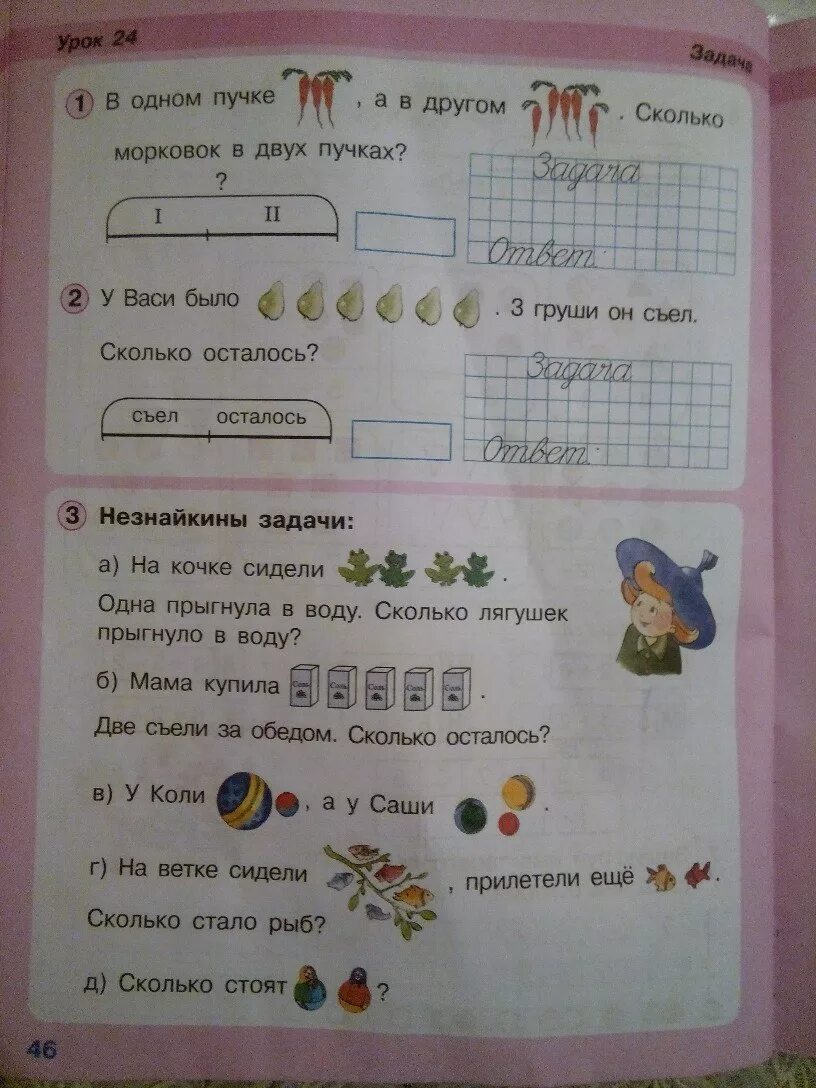 Урок 24
Задача
1 В одном пучке , а в другом . Сколько
морковок в двух пучках?
?
I II
Задача
Ответ:
2 У Васи было . 3 груши он съел.
Сколько осталось?
съел осталось
Задача
Ответ:
3 Незнайкины задачи:
а) На кочке сидели .
Одна прыгнула в воду. Сколько лягушек
прыгнуло в воду?
б) Мама купила Соль Соль Соль Соль Соль .
Две съели за обедом. Сколько осталось?
в) У Коли , а у Саши .
г) На ветке сидели , прилетели ещё .
Сколько стало рыб?
д) Сколько стоят ?
46